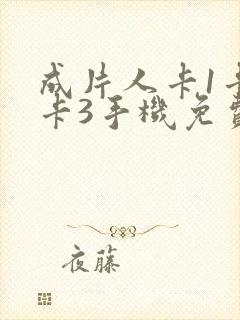 成片人卡1卡
卡3手機免費
夜藤